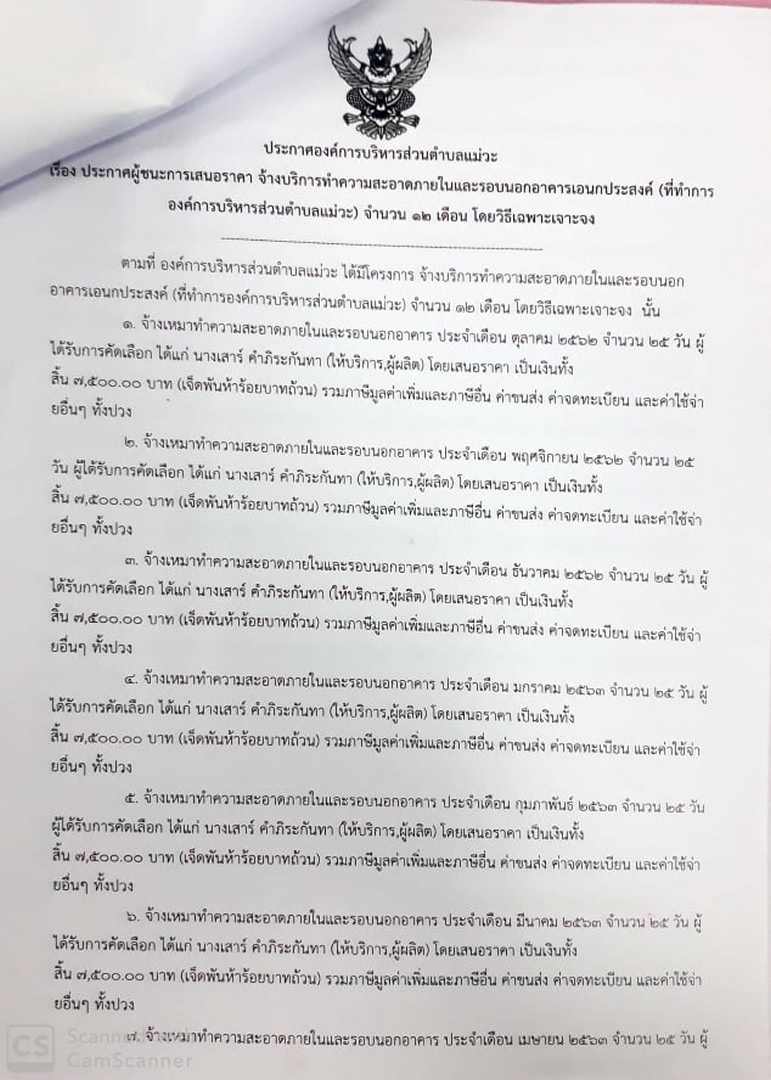 ประกาศองค์การบริหารส่วนตำบลแม่วะ
เรื่อง ประกาศผู้ชนะการเสนอราคา จ้างบริการทำความสะอาดภายในและรอบนอกอาคารเอนกประสงค์ (ที่ทำการ
องค์การบริหารส่วนตำบลแม่วะ) จำนวน ๑๒ เดือน โดยวิธีเฉพาะเจาะจง
ตามที่ องค์การบริหารส่วนตำบลแม่วะ ได้มีโครงการ จ้างบริการทำความสะอาดภายในและรอบนอก
อาคารเอนกประสงค์ (ที่ทำการองค์การบริหารส่วนตำบลแม่วะ) จำนวน ๑๒ เดือน โดยวิธีเฉพาะเจาะจง นั้น
๑. จ้างเหมาทำความสะอาดภายในและรอบนอกอาคาร ประจำเดือน ตุลาคม ๒๕๖๒ จำนวน ๒๕ วัน ผู้
ได้รับการคัดเลือก ได้แก่ นางเสาร์ คำภิระกันทา (ให้บริการ,ผู้ผลิต) โดยเสนอราคา เป็นเงินทั้ง
สิ้น ๗,๕๐๐.๐๐ บาท (เจ็ดพันห้าร้อยบาทถ้วน) รวมภาษีมูลค่าเพิ่มและภาษีอื่น ค่าขนส่ง ค่าจดทะเบียน และค่าใช้จ่
ายอื่นๆ ทั้งปวง
๒. จ้างเหมาทำความสะอาดภายในและรอบนอกอาคาร ประจำเดือน พฤศจิกายน ๒๕๖๒ จำนวน ๒๕
วัน ผู้ได้รับการคัดเลือก ได้แก่ นางเสาร์ คำภิระกันทา (ให้บริการ,ผู้ผลิต) โดยเสนอราคา เป็นเงินทั้ง
สิ้น ๗,๕๐๐.๐๐ บาท (เจ็ดพันห้าร้อยบาทถ้วน) รวมภาษีมูลค่าเพิ่มและภาษีอื่น ค่าขนส่ง ค่าจดทะเบียน และค่าใช้จ่
ายอื่นๆ ทั้งปวง
๓. จ้างเหมาทำความสะอาดภายในและรอบนอกอาคาร ประจำเดือน ธันวาคม ๒๕๖๒ จำนวน ๒๕ วัน ผู้
ได้รับการคัดเลือก ได้แก่ นางเสาร์ คำภิระกันทา (ให้บริการ,ผู้ผลิต) โดยเสนอราคา เป็นเงินทั้ง
สิ้น ๗,๕๐๐.๐๐ บาท (เจ็ดพันห้าร้อยบาทถ้วน) รวมภาษีมูลค่าเพิ่มและภาษีอื่น ค่าขนส่ง ค่าจดทะเบียน และค่าใช้จ่
ายอื่นๆ ทั้งปวง
๔. จ้างเหมาทำความสะอาดภายในและรอบนอกอาคาร ประจำเดือน มกราคม ๒๕๖๓ จำนวน ๒๕ วัน ผู้
ได้รับการคัดเลือก ได้แก่ นางเสาร์ คำภิระกันทา (ให้บริการ,ผู้ผลิต) โดยเสนอราคา เป็นเงินทั้ง
สิ้น ๗,๕๐๐.๐๐ บาท (เจ็ดพันห้าร้อยบาทถ้วน) รวมภาษีมูลค่าเพิ่มและภาษีอื่น ค่าขนส่ง ค่าจดทะเบียน และค่าใช้จ่
ายอื่นๆ ทั้งปวง
๕. จ้างเหมาทำความสะอาดภายในและรอบนอกอาคาร ประจำเดือน กุมภาพันธ์ ๒๕๖๓ จำนวน ๒๕ วัน
ผู้ได้รับการคัดเลือก ได้แก่ นางเสาร์ คำภิระกันทา (ให้บริการ,ผู้ผลิต) โดยเสนอราคา เป็นเงินทั้ง
สิ้น ๗,๕๐๐.๐๐ บาท (เจ็ดพันห้าร้อยบาทถ้วน) รวมภาษีมูลค่าเพิ่มและภาษีอื่น ค่าขนส่ง ค่าจดทะเบียน และค่าใช้จ่
ายอื่นๆ ทั้งปวง
๖. จ้างเหมาทำความสะอาดภายในและรอบนอกอาคาร ประจำเดือน มีนาคม ๒๕๖๓ จำนวน ๒๕ วัน ผู้
ได้รับการคัดเลือก ได้แก่ นางเสาร์ คำภิระกันทา (ให้บริการ,ผู้ผลิต) โดยเสนอราคา เป็นเงินทั้ง
สิ้น ๗,๕๐๐.๐๐ บาท (เจ็ดพันห้าร้อยบาทถ้วน) รวมภาษีมูลค่าเพิ่มและภาษีอื่น ค่าขนส่ง ค่าจดทะเบียน และค่าใช้จ่
ายอื่นๆ ทั้งปวง
๗. จ้างเหมาทำความสะอาดภายในและรอบนอกอาคาร ประจำเดือน เมษายน ๒๕๖๓ จำนวน ๒๕ วัน ผู้
CS
Scanned with
CamScanner